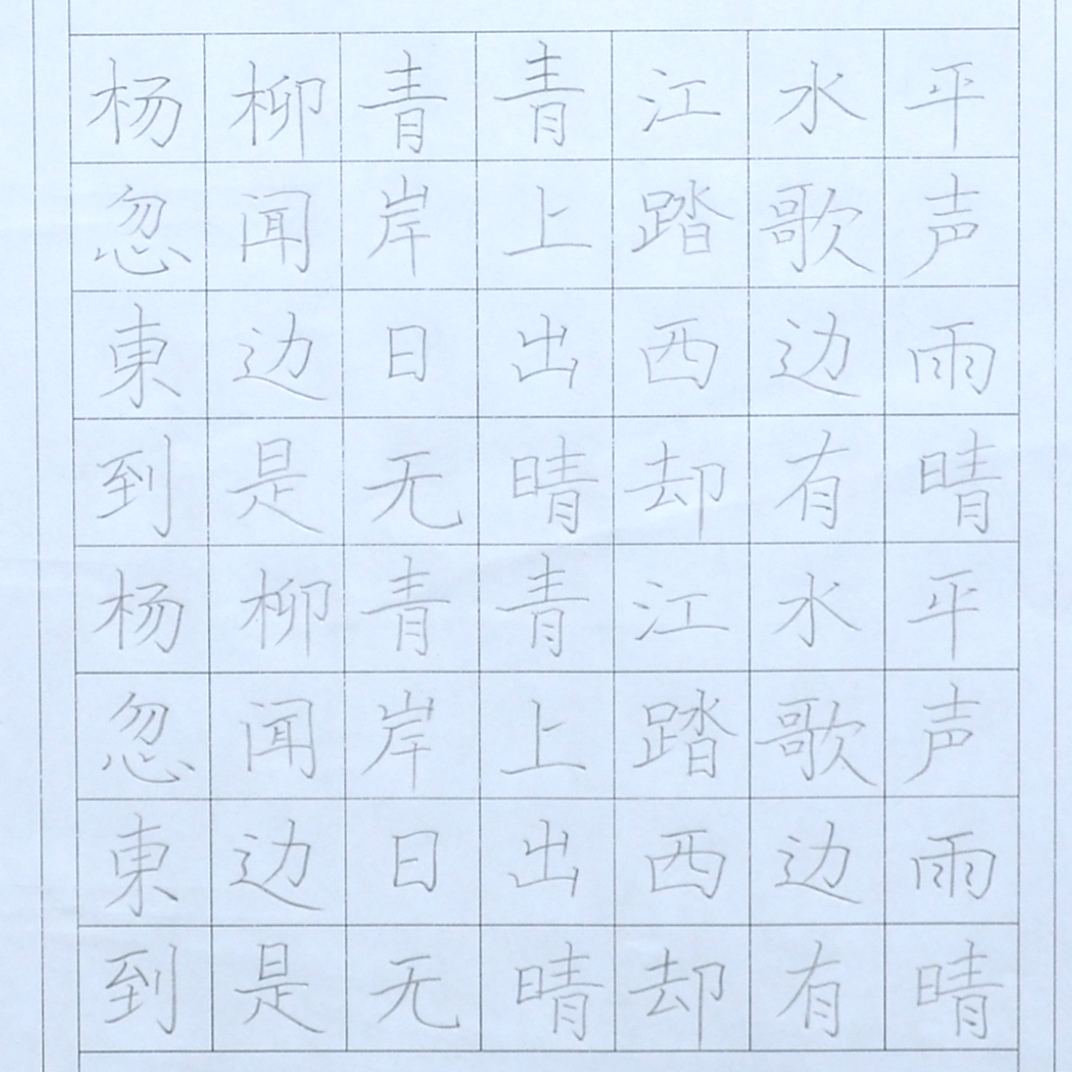 杨柳青青江水平
忽闻岸上踏歌声
東边日出西边雨
到是无晴却有晴
杨柳青青江水平
忽闻岸上踏歌声
東边日出西边雨
到是无晴却有晴